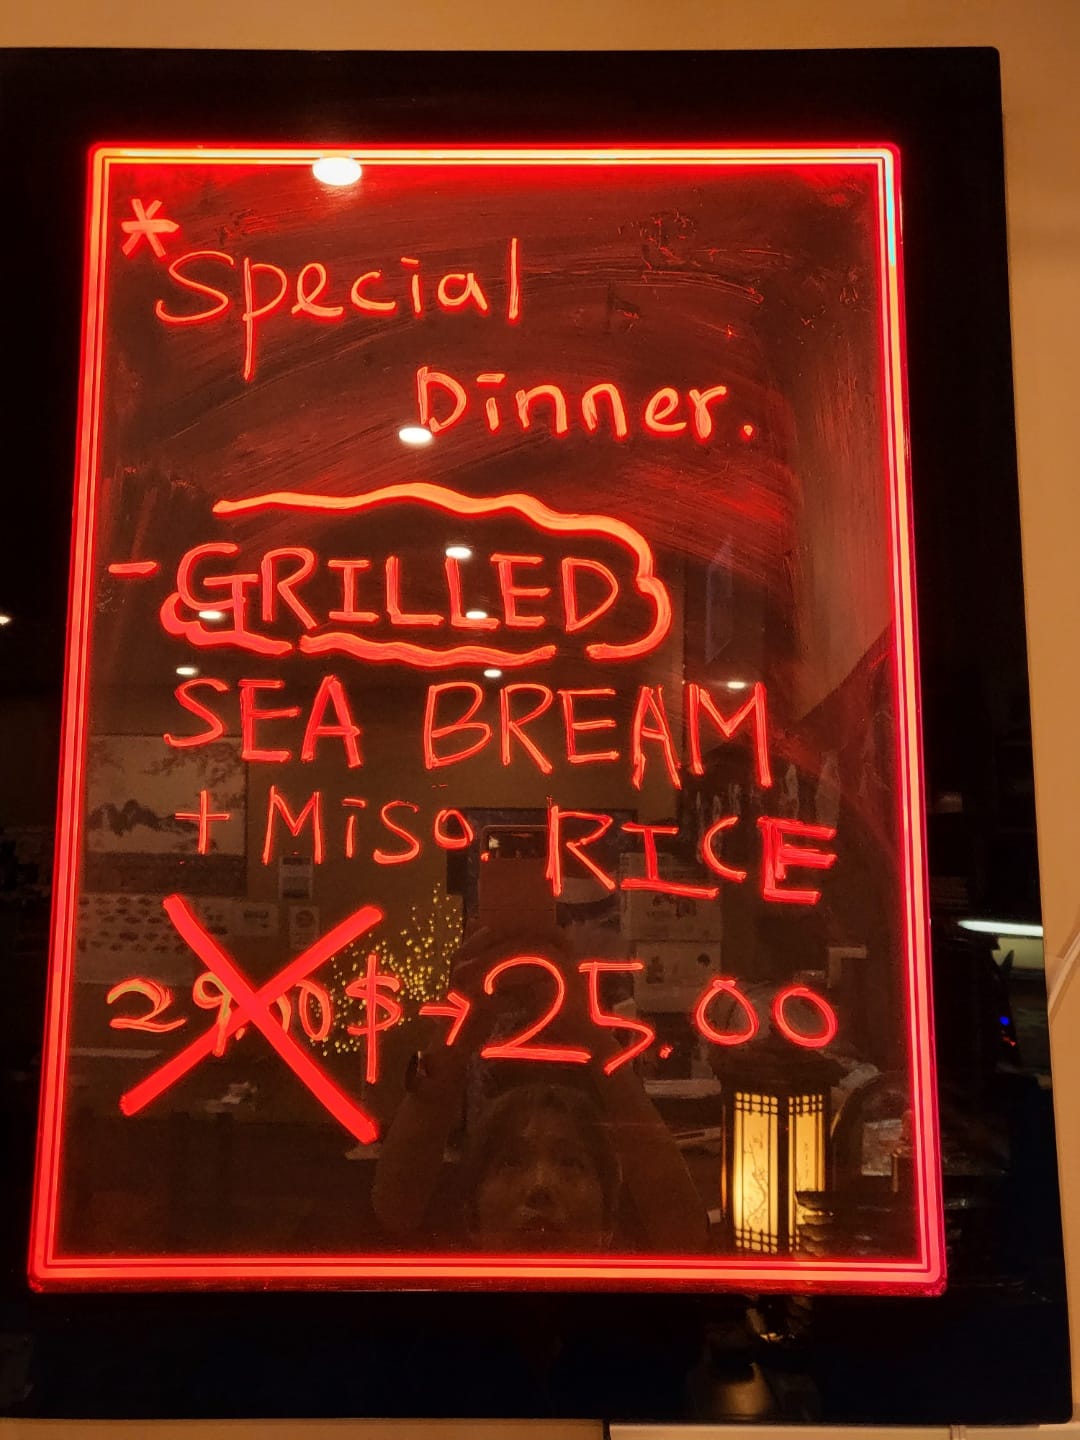 *Special
Dinner.
- GRILLED
SEA BREAM
+ MiSO. RICE
29.00 $ → 25.00